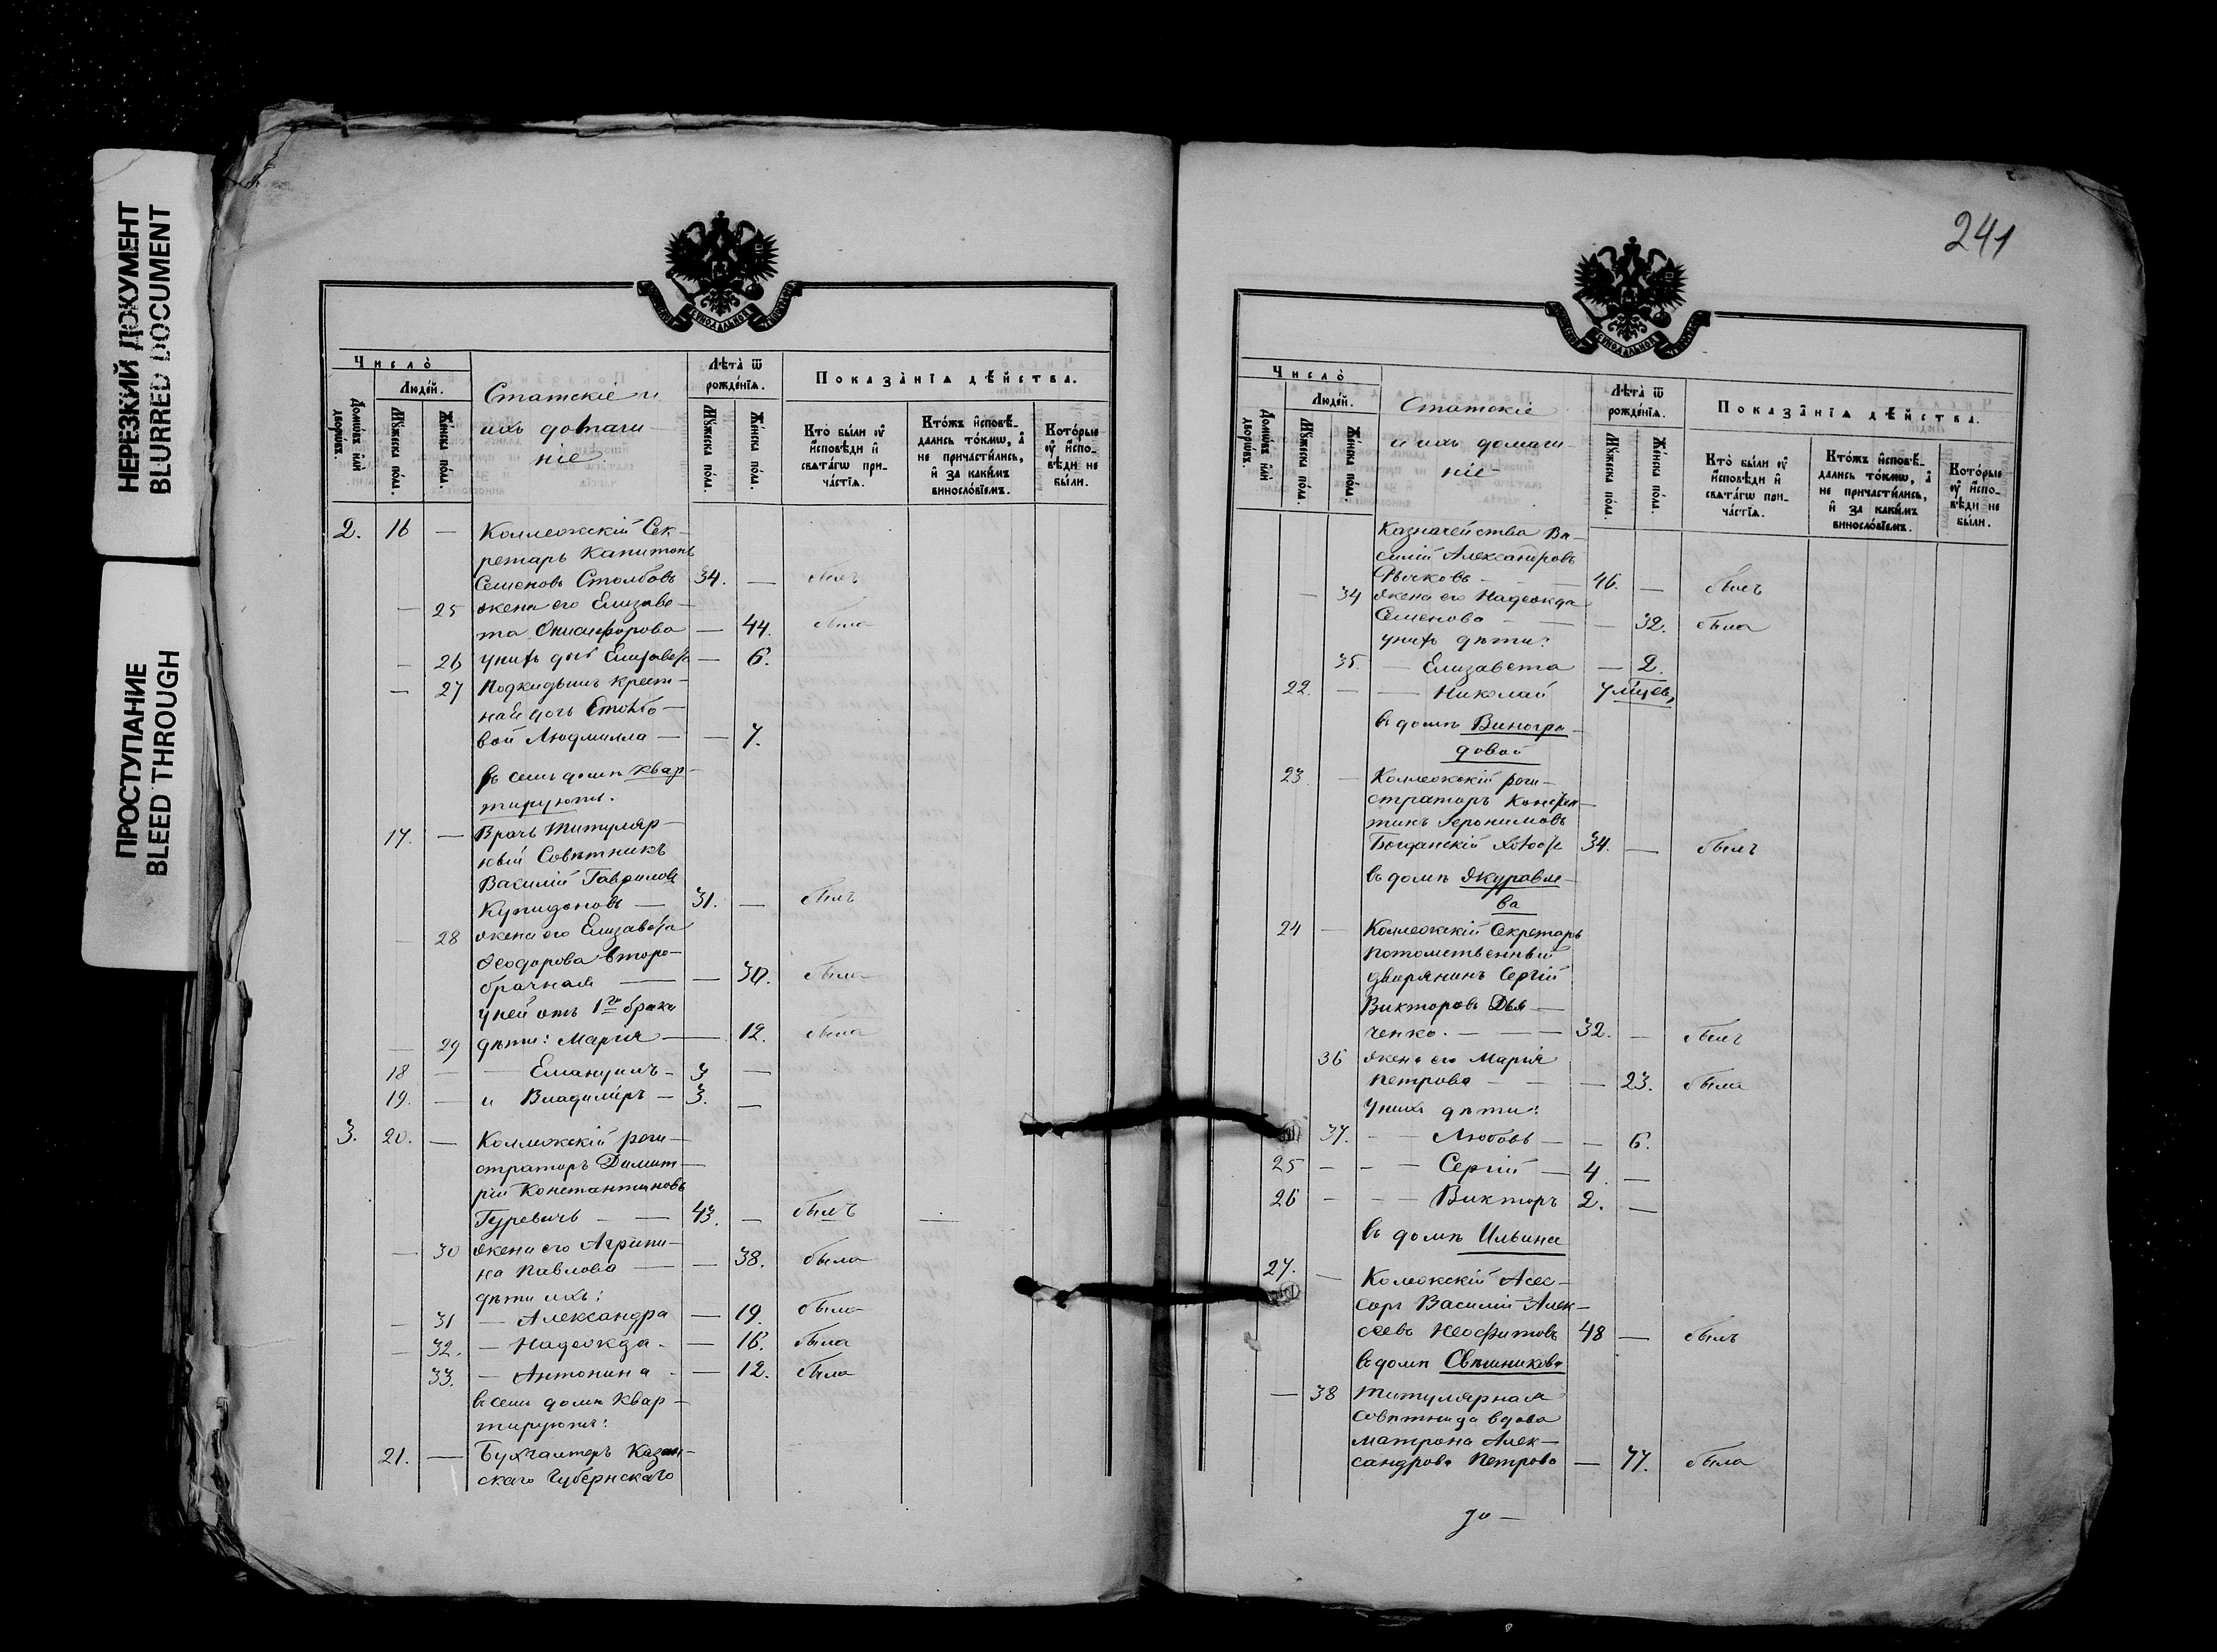 НЕРЕЗКИЙ ДОКУМЕНТ
BLURRED DOCUMENT
ПРОСТУПАНИЕ
BLEED THROUGH
Число̀
Людей.
Домѡвъ и҆лѝ дворѡ́въ.
Мꙋ́жеска по́ла.
Же́нска по́ла.
Статскіе и
ихъ домаш-
ніе.
Лѣта̀ ѿ
рожде́нїѧ.
Мꙋ́жеска по́ла.
Же́нска по́ла.
Показа̑нїѧ дѣ́йства.
Кто̀ бы́ли ᲂу҆
и҆сповѣ́ди и҆
свѧта́гѡ при-
ча́стїѧ.
Кто́жъ и҆сповѣ́-
дались то́кмѡ, а҆
не причасти́лись,
и҆ за каки́мъ
виносло́вїемъ.
Кото́рые
ᲂу҆ и҆спо-
вѣ́ди не
бы́ли.
2. 16 — Коллежскій Сек-
ретарь Капитонъ
Семеновъ Столбовъ 34. — былъ
— 25 жена его Елизаве-
та Онисифорова — 44. была
— 26 у нихъ дочь Елизавета — 6.
— 27 Подкидышъ крест-
ная дочь Столбо-
вой Людмилла — — 7.
въ семъ домѣ квар-
тируютъ.
17. — Врачъ Титуляр-
ный Совѣтникъ
Василій Гавриловъ
Купидоновъ — 31. — былъ
— 28 жена его Елизавета
Ѳеодорова второ-
брачная — — 30. была
у ней отъ 1го брака
— 29 дѣти: Марія — — 12. была
18 — — Емануилъ — 3 —
19. — и Владиміръ — 3. —
3. 20. — Коллежскій реги-
страторъ Димит-
рій Константиновъ
Гуревичъ — — 43. — былъ —
— 30 жена его Агрипи-
на Павлова — — 38. была
дѣти ихъ:
— 31 — Александра — 19. была
— 32. — Надежда. — 16. была
33. — Антонина — 12. была
въ семъ домѣ квар-
тируютъ:
21. — Бухгалтеръ Казан-
скаго Губернскаго
241
Число̀
Людей.
Домѡвъ и҆лѝ дворѡ́въ.
Мꙋ́жеска по́ла.
Же́нска по́ла.
Статскіе
и ихъ домаш-
ніе-
Лѣта̀ ѿ
рожде́нїѧ.
Мꙋ́жеска по́ла.
Же́нска по́ла.
Показа̑нїѧ дѣ́йства.
Кто̀ бы́ли ᲂу҆
и҆сповѣ́ди и҆
свѧта́гѡ при-
ча́стїѧ.
Кто́жъ и҆сповѣ́-
дались то́кмѡ, а҆
не причасти́лись,
и҆ за каки́мъ
виносло́вїемъ.
Кото́рые
ᲂу҆ и҆спо-
вѣ́ди не
бы́ли.
Казначейства Ва-
силій Александровъ
Рычковъ — — 46. — былъ
— 34 жена его Надежда
Семенова — — — 32. была
у нихъ дѣти:
35. — Елизавета — 2.
22. — — Николай 7 мѣсяц.
въ домѣ Виногра-
довой
23. — Коллежскій реги-
страторъ
Іеронимовъ
34. — былъ
въ домѣ Журавле-
ва
24 — Коллежскій Секретарь
потомственный
дворянинъ Сергій
Викторовъ Дья-
ченко. — — — 32. — былъ
36 жена его Марія
Петрова — — — 23. была
у нихъ дѣти:
37. — — Любовь — — 6.
25 — — — Сергій — 4. —
26 — — — Викторъ 2. —
въ домѣ Ильина
27. — Колежскій Асес-
соръ Василій Алек-
сѣевъ Неофитовъ 48 — былъ
въ домѣ Свѣшникова
— 38 Титулярная
совѣтница вдова
Матрона Алек-
сандрова Петрова — 77. была
до —